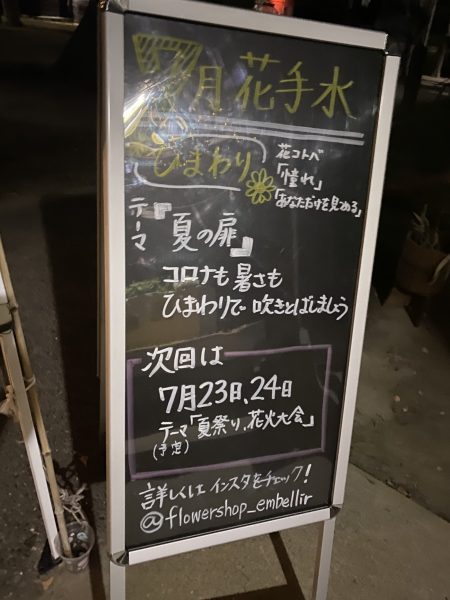 月花手水
ひまわり
花コトバ
「憧れ」
「あなただけを見つめる」
テーマ
『夏の扉』
コロナも暑さも
ひまわりで吹きとばしましょう
次回は
7月23日、24日
テーマ「夏祭り、花火大会」
(予定)
詳しくはインスタをチェック!
@flowershop_embellir